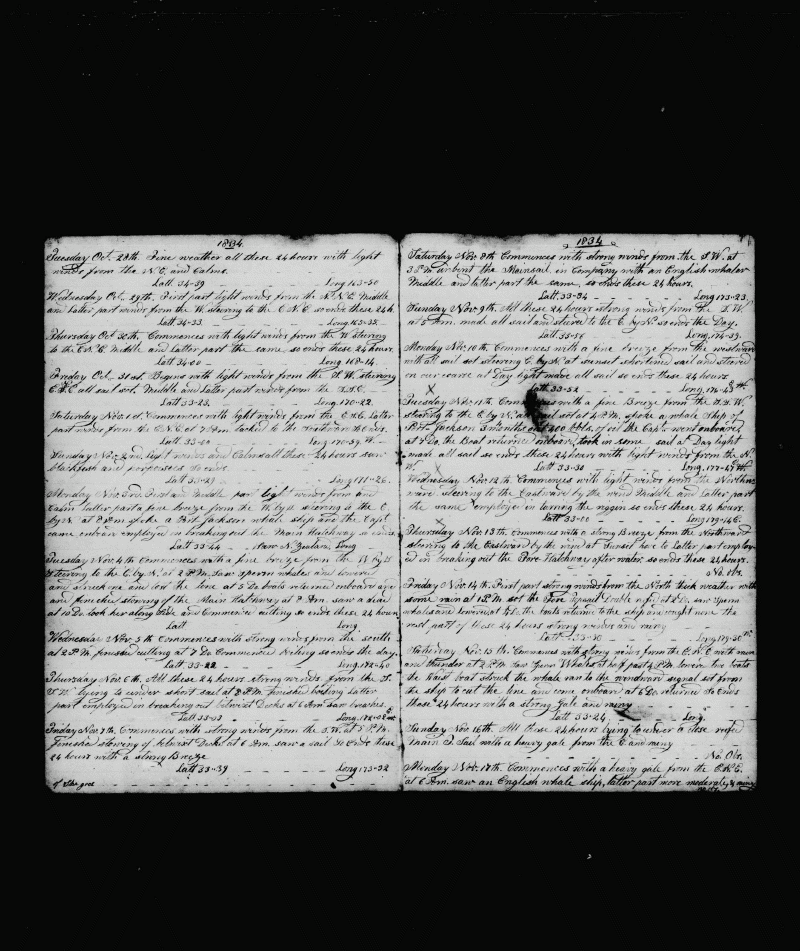 1834
Tuesday Oct. 28th. Fine weather all these 24 hours with light
winds from the N.E. and Calms.
Latt 34-39 Long 163-50
Wednesday Oct. 29th. First part light winds from the N.N.E. Middle
and latter part winds from the W. steering to the E.N.E. so ends these 24 h.
Latt 34-33 Long 165-35
Thursday Oct 30th. Commences with light winds from the W steering
to the E.N.E. Middle and Latter part the same, so ends these 24 hours.
Latt 34-00 Long 168-14
Friday Oct. 31st. Begins with light winds from the N.W. steering
all sail set. Middle and Latter part winds from the
Latt 33-23 Long 170-22
Saturday Nov. 1st. Commences with light winds from the E.N.E. Latter
part winds from the N.E. at 7 A.M. tacked to the Southward so Ends
Latt 33-00 Long 170-59. W
Sunday Nov. 2nd, light winds and Calms all these 24 hours saw
blackfish and porpoises So ends
Latt 33-29 Long 171-26
Monday Nov. 3rd. First and Middle part light winds from and
calm latter part a fine breeze from the W by N steering to the E.
by N. at 8 P.M spoke a Port Jackson whale ship and the Capt
came onboard employed in breaking out the Main Hatchway so ends
Latt 33-44 New N. Zealand Long
Tuesday Nov. 4th Commences with a fine breeze from the W by N
Steering to the E. by N. at 2 P.M. Saw Sperm whales and lowered
and struck one and lost the line at 5 Do boats returned onboard and
and finished stowing of the Main Hatchway at 8 A.m. saw a dead
at 10 Do. took her along Side and Commenced cutting so ends these 24 hours
Latt Long
Wednesday Nov. 5th Commences with strong winds from the south
at 2 P.M. finished cutting at 7 Do Commenced boiling so ends the day.
Latt. 33-22 Long. 172-40
Thursday Nov. 6th. All these 24 hours strong winds from the S.
S.W. lying to under short sail at 8 P.M. finished boiling latter
part employed in breaking out between Decks at 6 A.m saw breaches
Latt 33-03 Long. 172-02
Friday Nov 7th. Commences with strong winds from the S.W. at 5 P.M.
Finished stowing of between Decks at 6 A.m. saw a sail So Ends these
24 hours with a strong Breeze
Latt 33-39 Long 173-32
1834
Saturday Nov. 8th Commences with strong winds from the S.W. at
3 P.M. unbent the Mainsail, in Company with an English whaler
Middle and latter part the same, so ends these 24 hours.
Latt 33-34 Long 173-23
Sunday Nov. 9th. All these 24 hours strong winds from the S.W.
at 5 A.m. made all sail and steered to the E. by N. so ends the Day.
Latt. 33-54 Long. 174-39.
Monday Nov. 10th Commences with a fine breeze from the westward
with all sail set steering E. by N. at sunset shortened sail and steered
on our course at Day light made all sail so ends these 24 hours
Latt 33-52 Long. 176-43
Tuesday Nov. 11th Commences with a fine Breeze from the
steering to the E. by N. all sail set at 4 P.M. spoke a whale Ship of
Port Jackson 3 months out 200 bbls. of oil the Capt. went onboard
at 7 Do. the Boat returned onboard, took in some sail at Day light
made all sail so ends these 24 hours with light winds from the N.
W. Latt 33-30 Long. 177-47
Wednesday Nov. 12th. Commences with light winds from the North
ward steering to the Eastward by the wind Middle and latter part
the same employed in turning the riggin so ends these 24 hours.
Latt 33-00 Long 179-46
Thursday Nov 13th commences with a strong Breeze from the Northward
steering to the Eastward by the wind at Sunset hove to Latter part employ-
ed in breaking out the Fore Hatchway after water. so ends these 24 hours.
No. Obs.
Friday Nov. 14th. First part strong winds from the North thick weather with
some rain at 1 P.M. set the Fore Topsail Double reefed at 2 Do. saw sperm
whales and lowered at 4 Do. the boats returned to the ship and caught none the
rest part of these 24 hours strong winds and rainy
Latt. 33-20 Long 179-30
Saturday Nov. 15th. Commences with strong winds from the E.N.E with rain
and thunder at 2 P.M. saw Sperm Whales at half past 4 P.M. lowered two boats
the Waist boat struck the whale ran to the windward signal set from
the ship to cut the line and come onboard at 6 Do. returned So Ends
these 24 hours with a strong Gale and rainy
Latt 33-24 Long.
Sunday Nov. 16th. All these 24 hours lying to under a close reefed
Main T. Sail with a heavy gale from the E. and rainy
No. Obs.
Monday Nov. 17th. Commences with a heavy gale from the E.N.E.
at 6 A.m. saw an English whale ship, latter part more moderate, & rainy